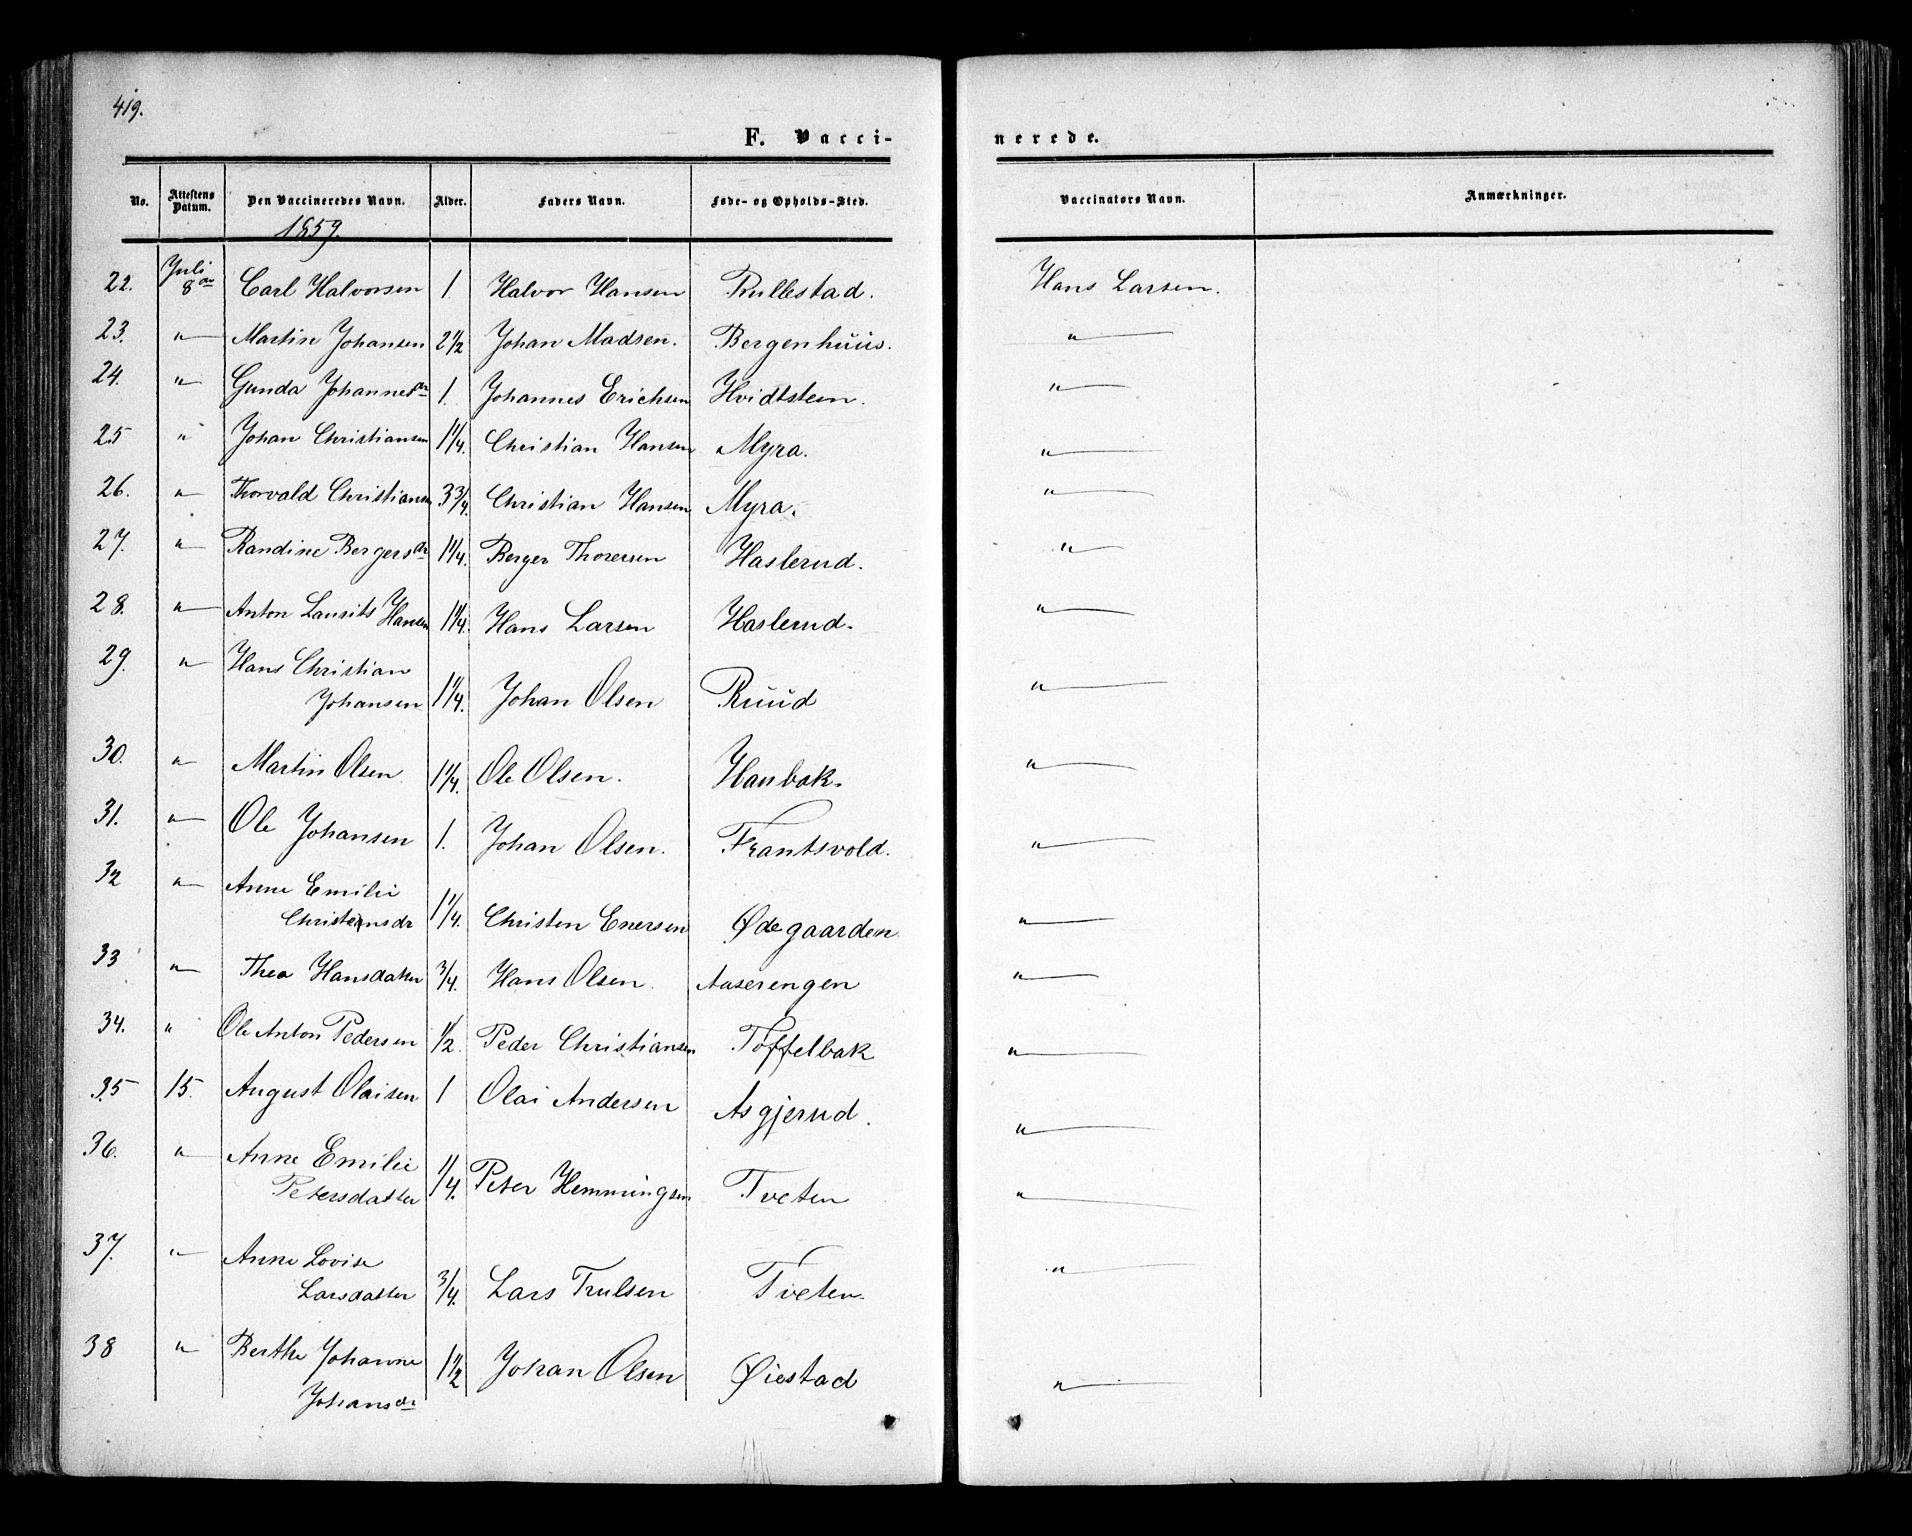 419.
F. Vacci-
nerede.
No. Attestens Datum. Den Vaccineredes Navn. Alder. Faders Navn. Føde- og Opholds-Sted. Vaccinators Navn. Anmærkninger.
1859.
22. Juli 8de Carl Halvorsen 1. Halvor Hansen Trullestad. Hans Larsen.
23. " Martin Johansen 2 1/2 Johan Madsen. Bergenhuus. "
24. " Gunda Johannesdr 1. Johannes Erichsen Hvidtsteen. "
25 " Johan Christiansen 1 1/4. Christian Hansen Myra. "
26. " Thorvald Christiansen 3 3/4. Christian Hansen Myra. "
27. " Randine Bergersdr 1 1/4. Berger Thoresen Haslerud. "
28. " Anton Laurits Hansen 1 1/4. Hans Larsen Haslerud. "
29. " Hans Christian
Johansen 1 1/4. Johan Olsen Ruud "
30. " Martin Olsen. 1 1/4. Ole Olsen. Haubak. "
31. " Ole Johansen 1. Johan Olsen. Frantsvold. "
32 " Anne Emilie
Christensdr 1 1/4. Christen Enersen Ødegaarden. "
33 " Thea Hansdatter 3/4. Hans Olsen. Aaserengen "
34. " Ole Anton Pedersen 1/2. Peder Christiansen Toffelbak "
35 15. August Olaisen 1 Olai Andersen Asgjerud. "
36. " Anne Emilie
Petersdatter 1/4. Peter Hemmingsen Tveten "
37. " Anne Lovise
Larsdatter 3/4. Lars Trulsen Tveten. "
38 " Berthe Johanne
Johansdr 1 1/2 Johan Olsen Øiestad "